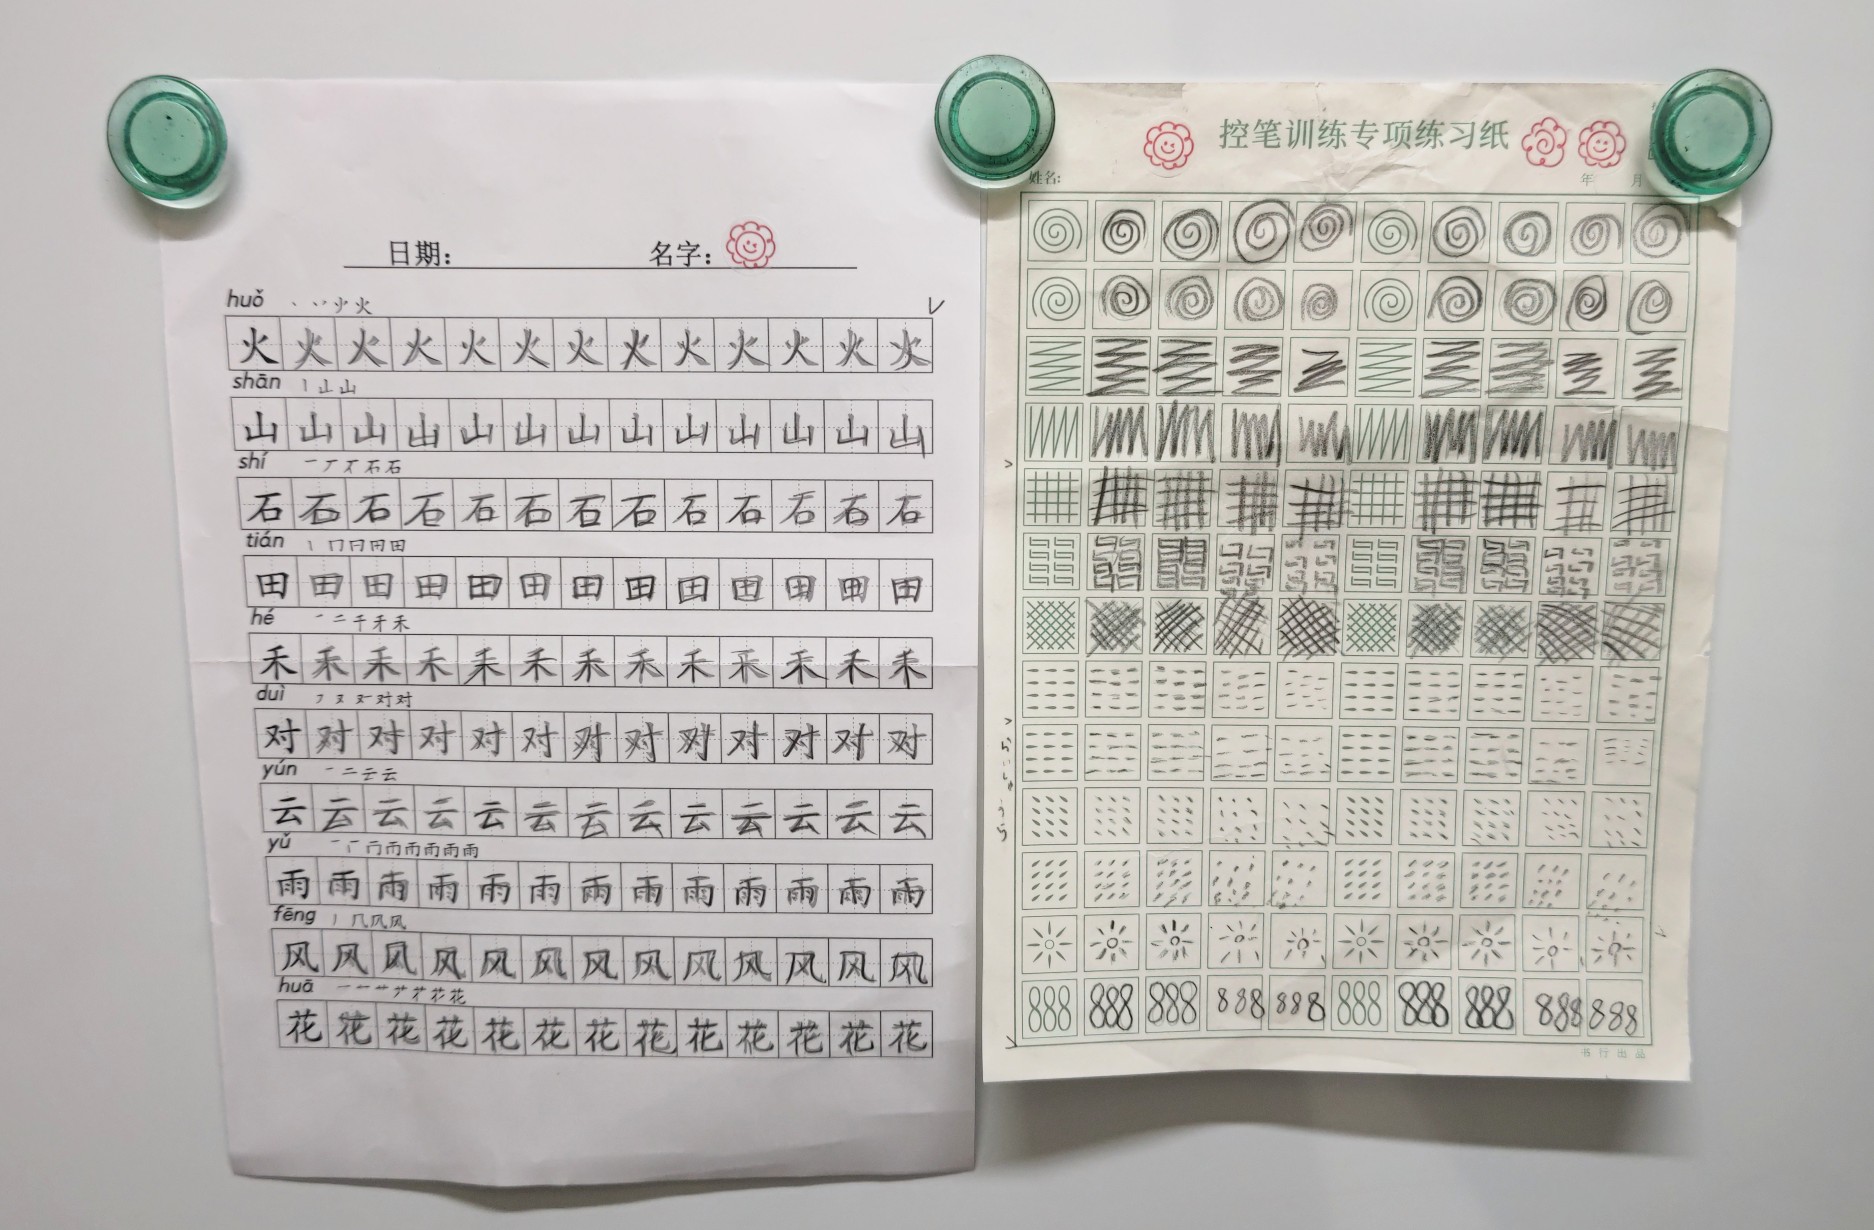 日期： 名字：
huǒ 火
火火火火火火火火火火火火火
shān 山
山山山山山山山山山山山山山
shí 一丆石石
石石石石石石石石石石石石石
tián 丨冂冃田田
田田田田田田田田田田田田田
hé 一二千禾禾
禾禾禾禾禾禾禾禾禾禾禾禾禾
duì 又对对
对对对对对对对对对对对对对
yún 一二云云
云云云云云云云云云云云云云
yǔ 一雨雨雨雨
雨雨雨雨雨雨雨雨雨雨雨雨雨
fēng 几风风
风风风风风风风风风风风风风
huā 一艹花花
花花花花花花花花花花花花花
控笔训练专项练习纸
姓名: 年 月
888 888 888 888 888 888 888 888 888 888
书行出品